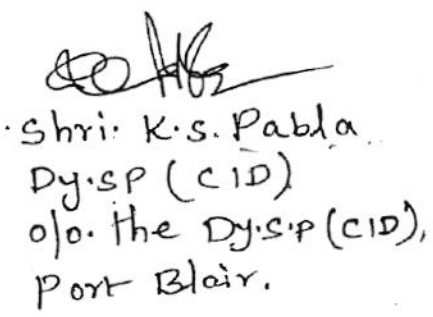 Shri. K.S. Pabla
Dy.SP (CID)
o/o. the Dy.S.P (CID),
Port Blair.